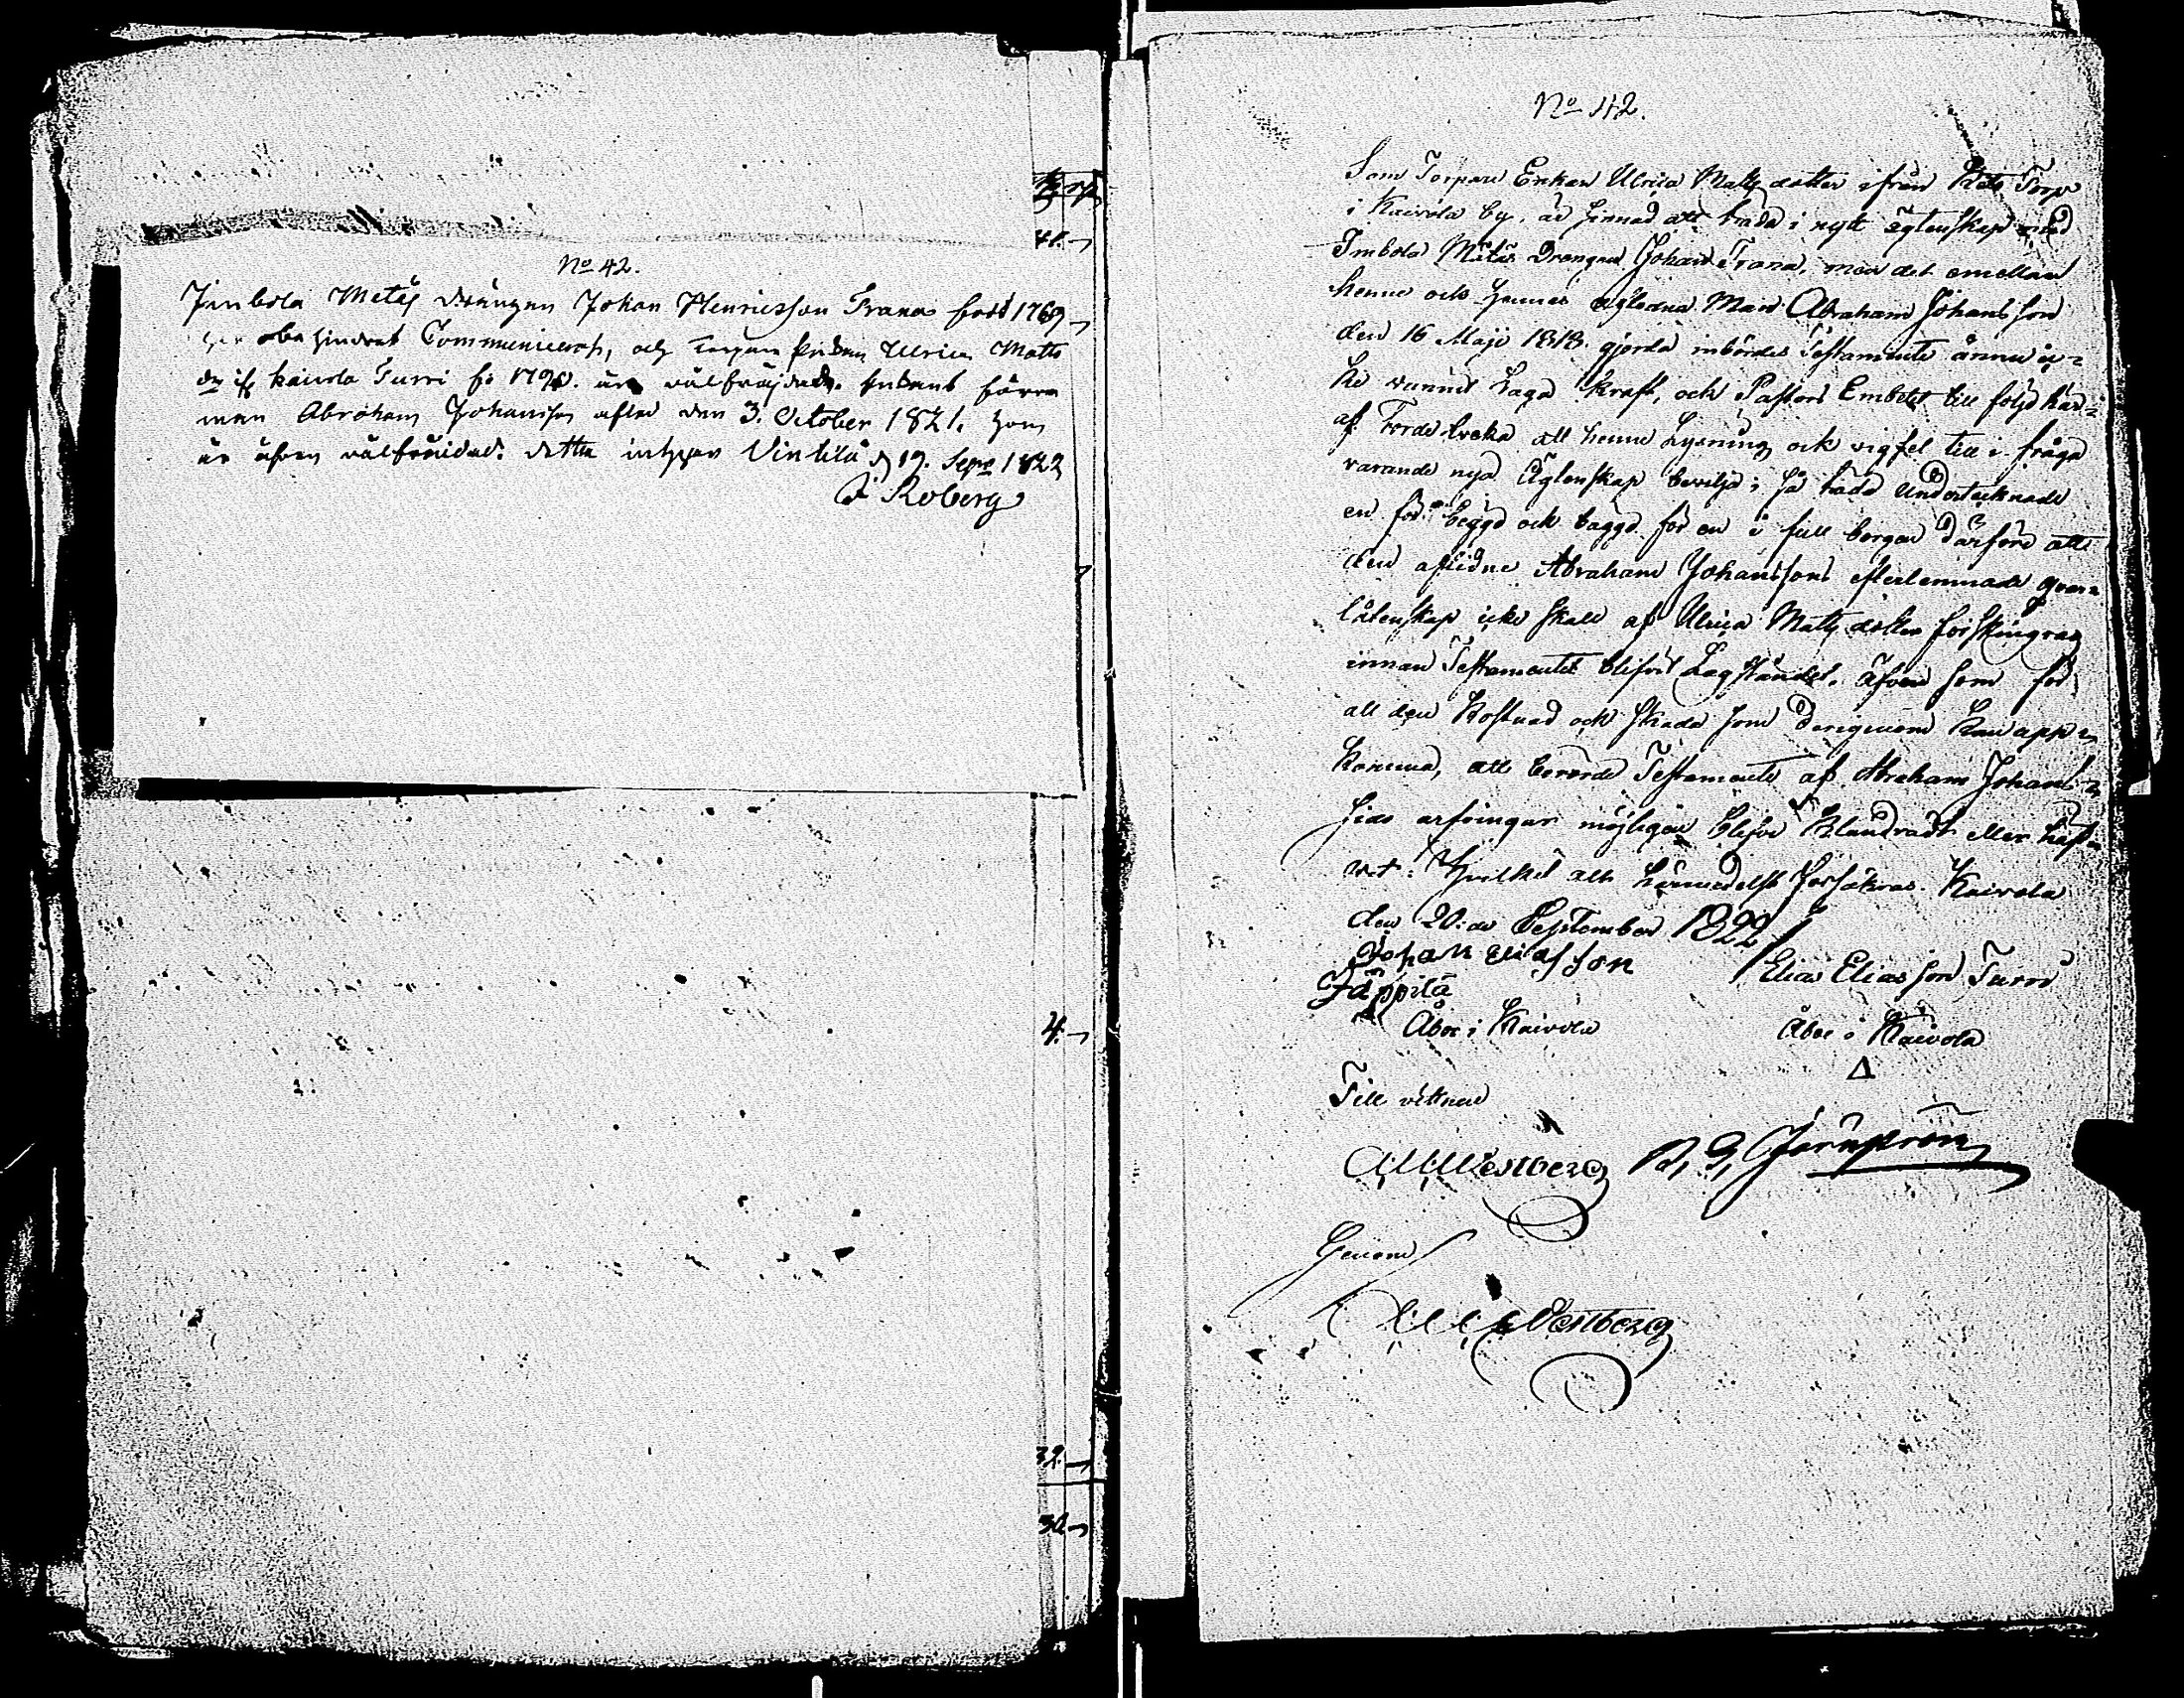 No 42.
Jmbola Metäs drängen Johan Henricsson Frana född 1769
har obehindrat Communicerat, och Enkan Ulrica Matts
dr if Kaivola Turri fö 1798. är välfräjdade. Enkans förra
man Abraham Johansson afled den 3. October 1821. som
är äfven välfräjdad. detta intygar Vintila d 19. Sepr 1822
Roberg
41.
4.
32.
30.
No 42.
Som Torpare Enkan Ulrica Matts dotter ifrån Torp
i Kaivola by, är sinnad att träda i nytt ägtenskap med
Imbola Metäs Drengen Johan Frana, men det emellan
henne och hennes aflednа Man Abraham Johansson
den 16 Maji 1818. gjorda inbördes Testamente ännu ic-
ke vunnit Laga kraft, och Pastors Embetet till följd här-
af torde tveka att henne Lysning och vigsel till i fråga
varande nya Ägtenskap bevilja; så undertecknade
en för begge och begge för en i full borgen därföre att
den aflidne Abraham Johanssons efterlemnade qvar-
låtenskap icke skall af Ulrica Matts dotter förskingras
innan Testamentet blifvit Lagståndet. Äfven som för
all den Kostnad och skada som derigenom kan upp-
komma, att berörde Testamente af Abraham Johans-
sons arfvingar möjligen blifver Klandradt eller häf-
vet. Hvilket allt härmedelst försäkras. Kaivola
den 20:de September 1822
Johan Eliasson
Jäppilä
Elias Eliasson Turri
Åbo i Kaivola
Åbo i Kaivola
Till vittne
Westberg
Genom
Westberg